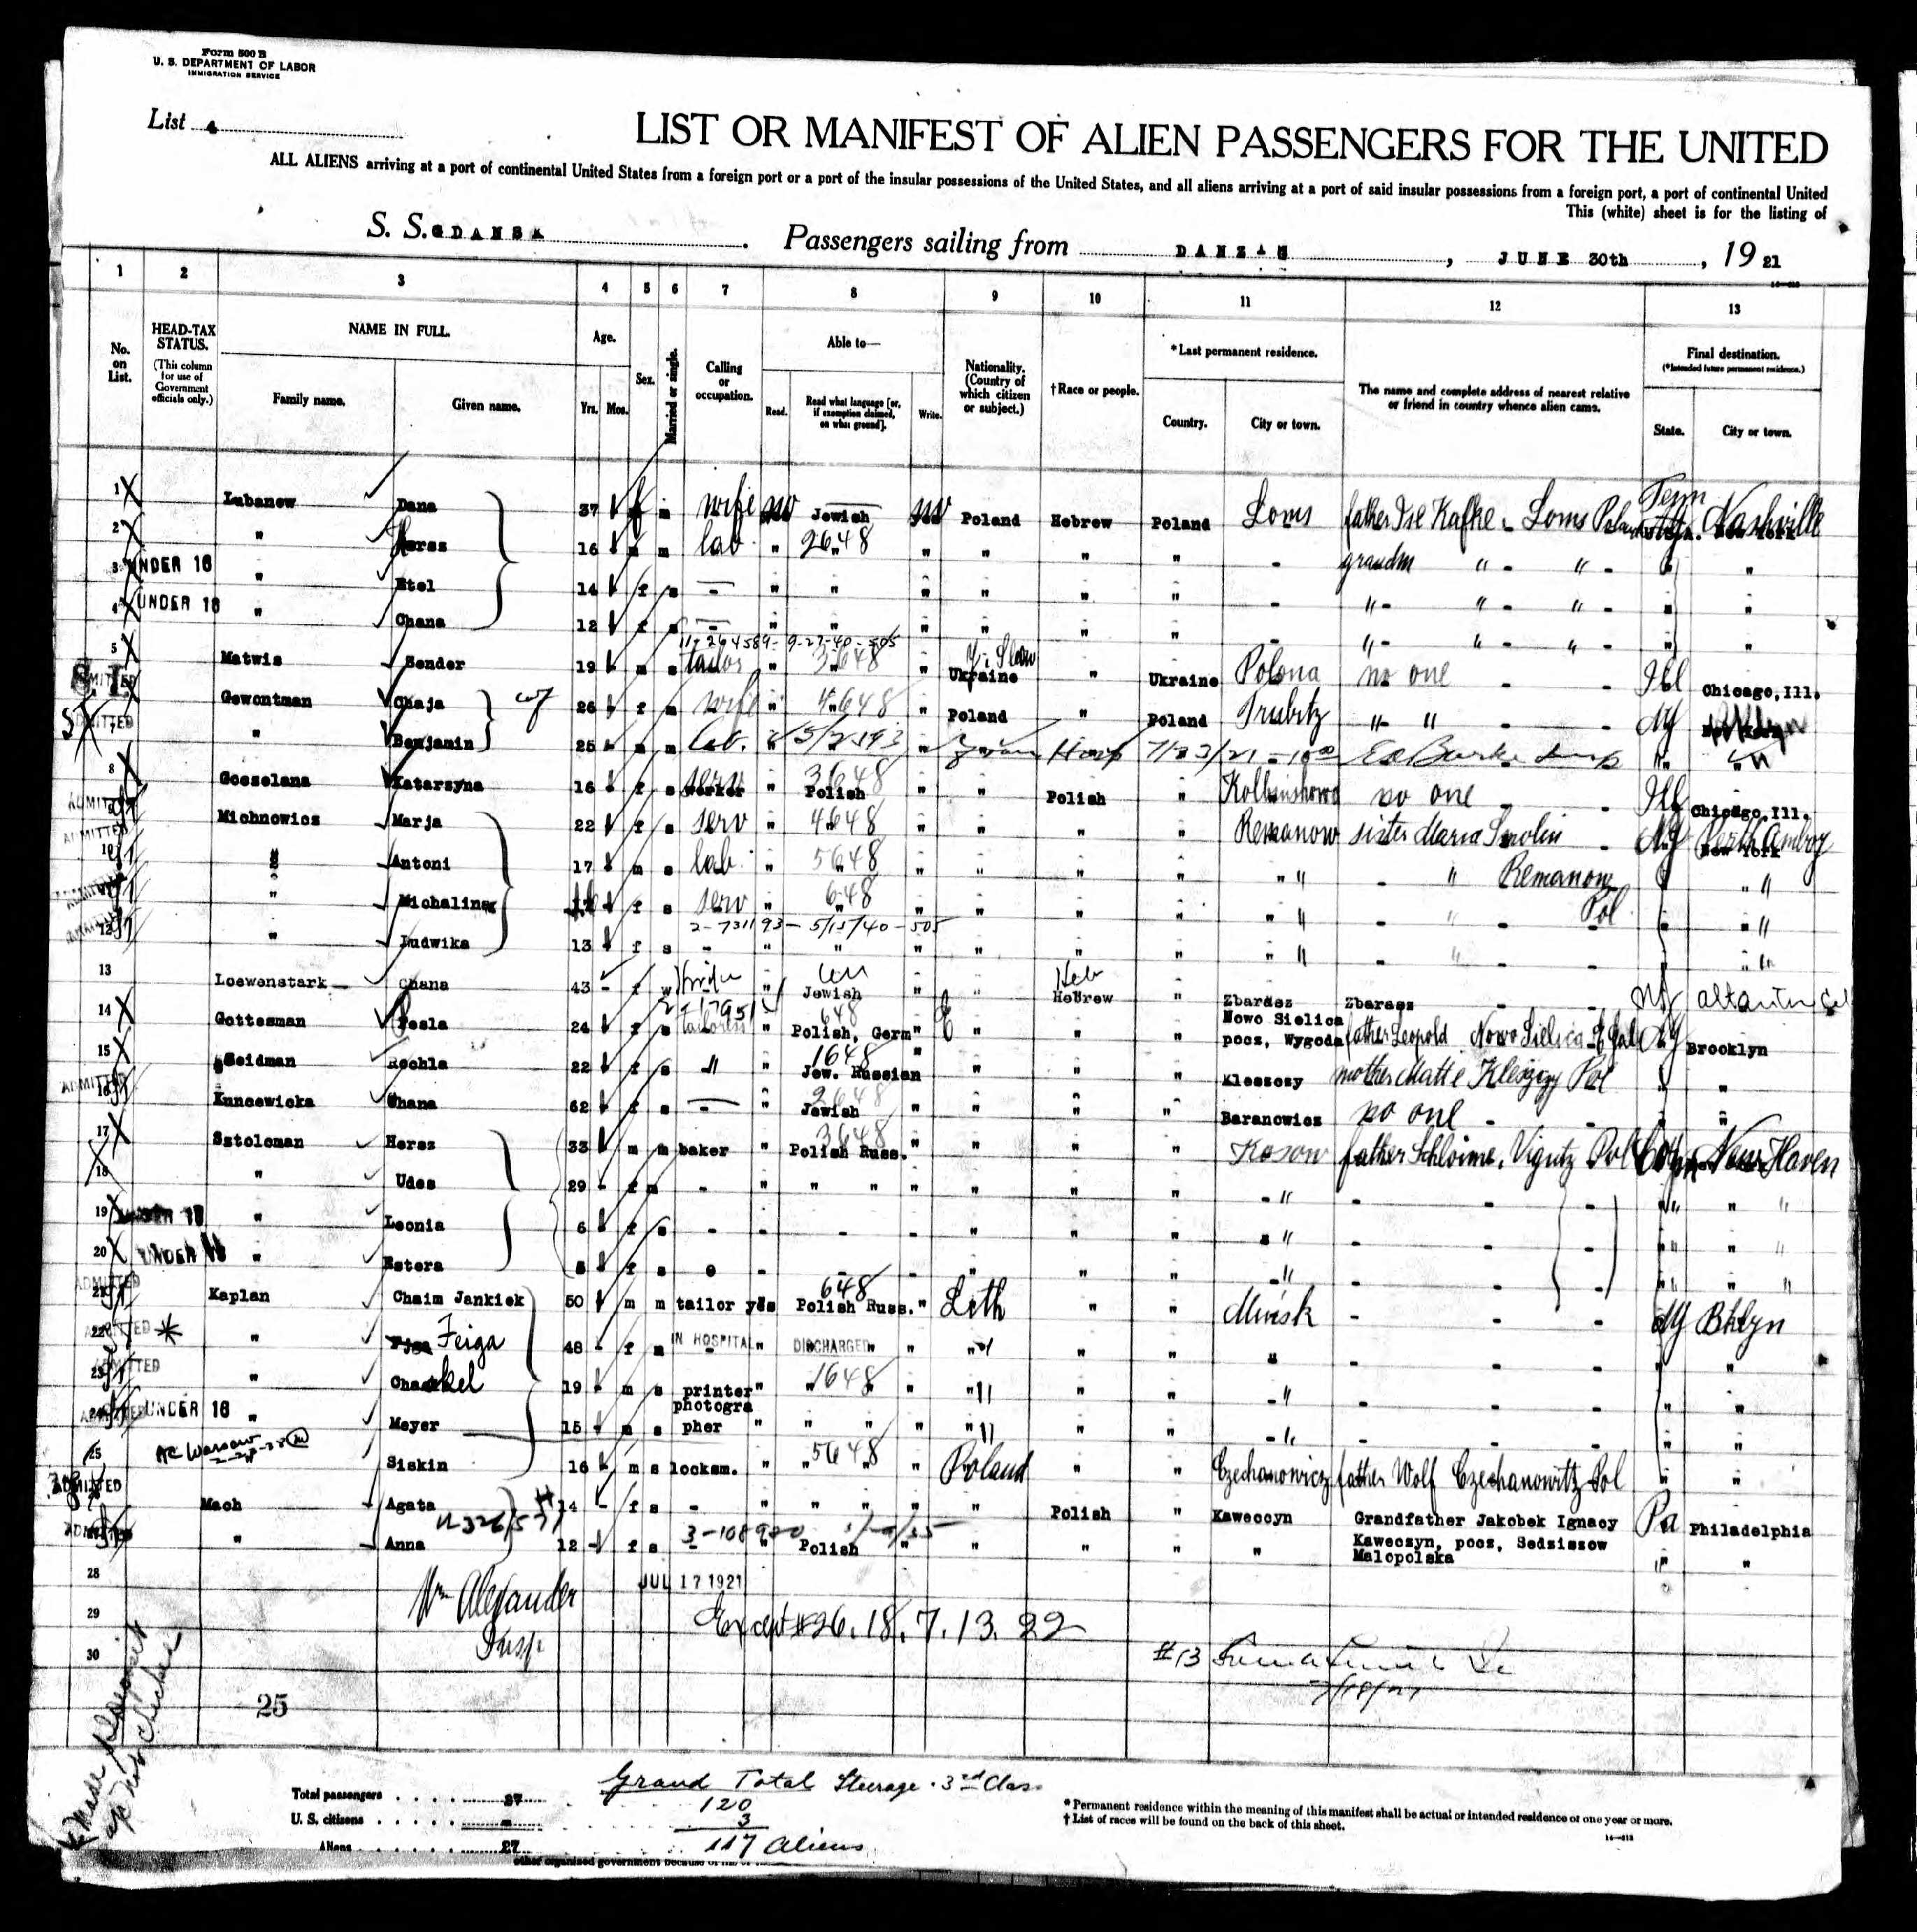 Form 500 B
U. S. DEPARTMENT OF LABOR
IMMIGRATION SERVICE
List 4
LIST OR MANIFEST OF ALIEN PASSENGERS FOR THE UNITED
ALL ALIENS arriving at a port of continental United States from a foreign port or a port of the insular possessions of the United States, and all aliens arriving at a port of said insular possessions from a foreign port, a port of continental United
This (white) sheet is for the listing of
S. S. GDANSK Passengers sailing from DANZIG, JUNE 30th, 1921
1 2 3 4 5 6 7 8 9 10 11 12 13
No. on List.
HEAD-TAX STATUS.
(This column for use of Government officials only.)
NAME IN FULL.
Family name. Given name.
Age.
Yrs. Mos.
Sex.
Married or single.
Calling or occupation.
Able to—
Read. Read what language [or, if exemption claimed, on what ground]. Write.
Nationality. (Country of which citizen or subject.)
†Race or people.
*Last permanent residence.
Country. City or town.
The name and complete address of nearest relative or friend in country whence alien came.
Final destination.
(*Intended future permanent residence.)
State. City or town.
1 Lubanew Dana 37 f m wife no Jewish no Poland Hebrew Poland Loms father Isl Kafke - Loms Poland Tenn Nashville
2 " Heres 16 m m lab " 2648 " " " " - grandm " - " - "
3 UNDER 16 " Etel 14 f s - " " " " " " - " - " - " - " "
4 UNDER 16 " Chana 12 f s - " " " " " " - " - " - " - " "
11-264589-9-27-40-505
5 Matwis Sender 19 m s tailor " 3648 " Ukraine " Ukraine Polona no one - - Ill Chicago, Ill.
ADMITTED Gewontman Chaja wf 26 f m wife " 4648 " Poland " Poland Trubitz " " - - NY
ADMITTED 7 " Benjamin 25 m m lab. 7/23/21
8 Gosselana Katarzyna 16 f s serv worker " 3648 Polish " " Polish " no one - - Ill Chicago, Ill.
ADMITTED Michnowicz Marja 22 f s serv " 4648 " " " " Remanow sister Maria Smolin - NJ Perth Amboy New York
ADMITTED 10 " Antoni 17 m s lab " 5648 " " " " " - " Remanow " "
ADMITTED " Michalina f s serv " 648 " " " " " - " Pol - " "
2-731193-5/15/40-505
12 " Ludwika 13 f s - " " " " " " " - " - " "
13 Loewenstark Chana 43 - f w " Jewish " " Heb Hebrew " Zbardez Zbarasz - - NJ
14 Gottesman Pesla 24 f s " 648 Polish, Germ " " " " Nowo Sielica pocz, Wygoda father Leopold Nowo Sielica E Gal NY Brooklyn
15 Seidman Rochla 22 f s " " 1648 Jew. Russian " " " " Kleszczy mother Matte Pol " "
ADMITTED 16 Kuncewicka Chana 62 f s - " 2648 Jewish " " " " Baranowicz no one - - " "
17 Sztoleman Hersz 33 m m baker " 3648 Polish Russ. " " " " Kosow father Schloime, Pol Conn New Haven
18 " Udes 29 - f m - " " " " " " " - " - - - " "
19 UNDER 16 " Leonia 6 f s - - - - " " " " - - - " "
20 UNDER 16 " Estera 5 f s - - - - " " " - " - - - " "
ADMITTED 21 Kaplan Chaim Jankiek 50 m m tailor yes 648 Polish Russ. " Lith " " Minsk - - - NY Bklyn
ADMITTED 22 * " Feiga 48 - f m IN HOSPITAL " DISCHARGED " " " " " " - - - " "
ADMITTED 23 " Chaskel 19 m s printer " 1648 " " " " " - " - - - " "
24 UNDER 16 " Meyer 15 m s photogra pher " " " " " " " - " - - - " "
25 AC Warsaw Siskin 16 m s locksm. " 5648 " Poland " " Czechanowicz father Wolf Czechanowitz Pol " "
ADMITTED Mach Agata 14 - f s - " " " " " Polish " Kaweccyn Grandfather Jakobek Ignacy Pa Philadelphia
ADMITTED " Anna 12 - f s - " Polish " " " " " Kaweczyn, pocz, Sedziszow Malopolska " "
28 JUL 17 1921
Wm Alexander Insp.
29 Except #26. 18. 7. 13. 22
30 #13
7/18/21
25
Made deposit
Total passengers . . . . 27
U. S. citizens . . . . . -
Aliens . . . . . . 27
Grand Total Steerage - 3rd Class
120
3
117 Aliens
* Permanent residence within the meaning of this manifest shall be actual or intended residence of one year or more.
† List of races will be found on the back of this sheet.